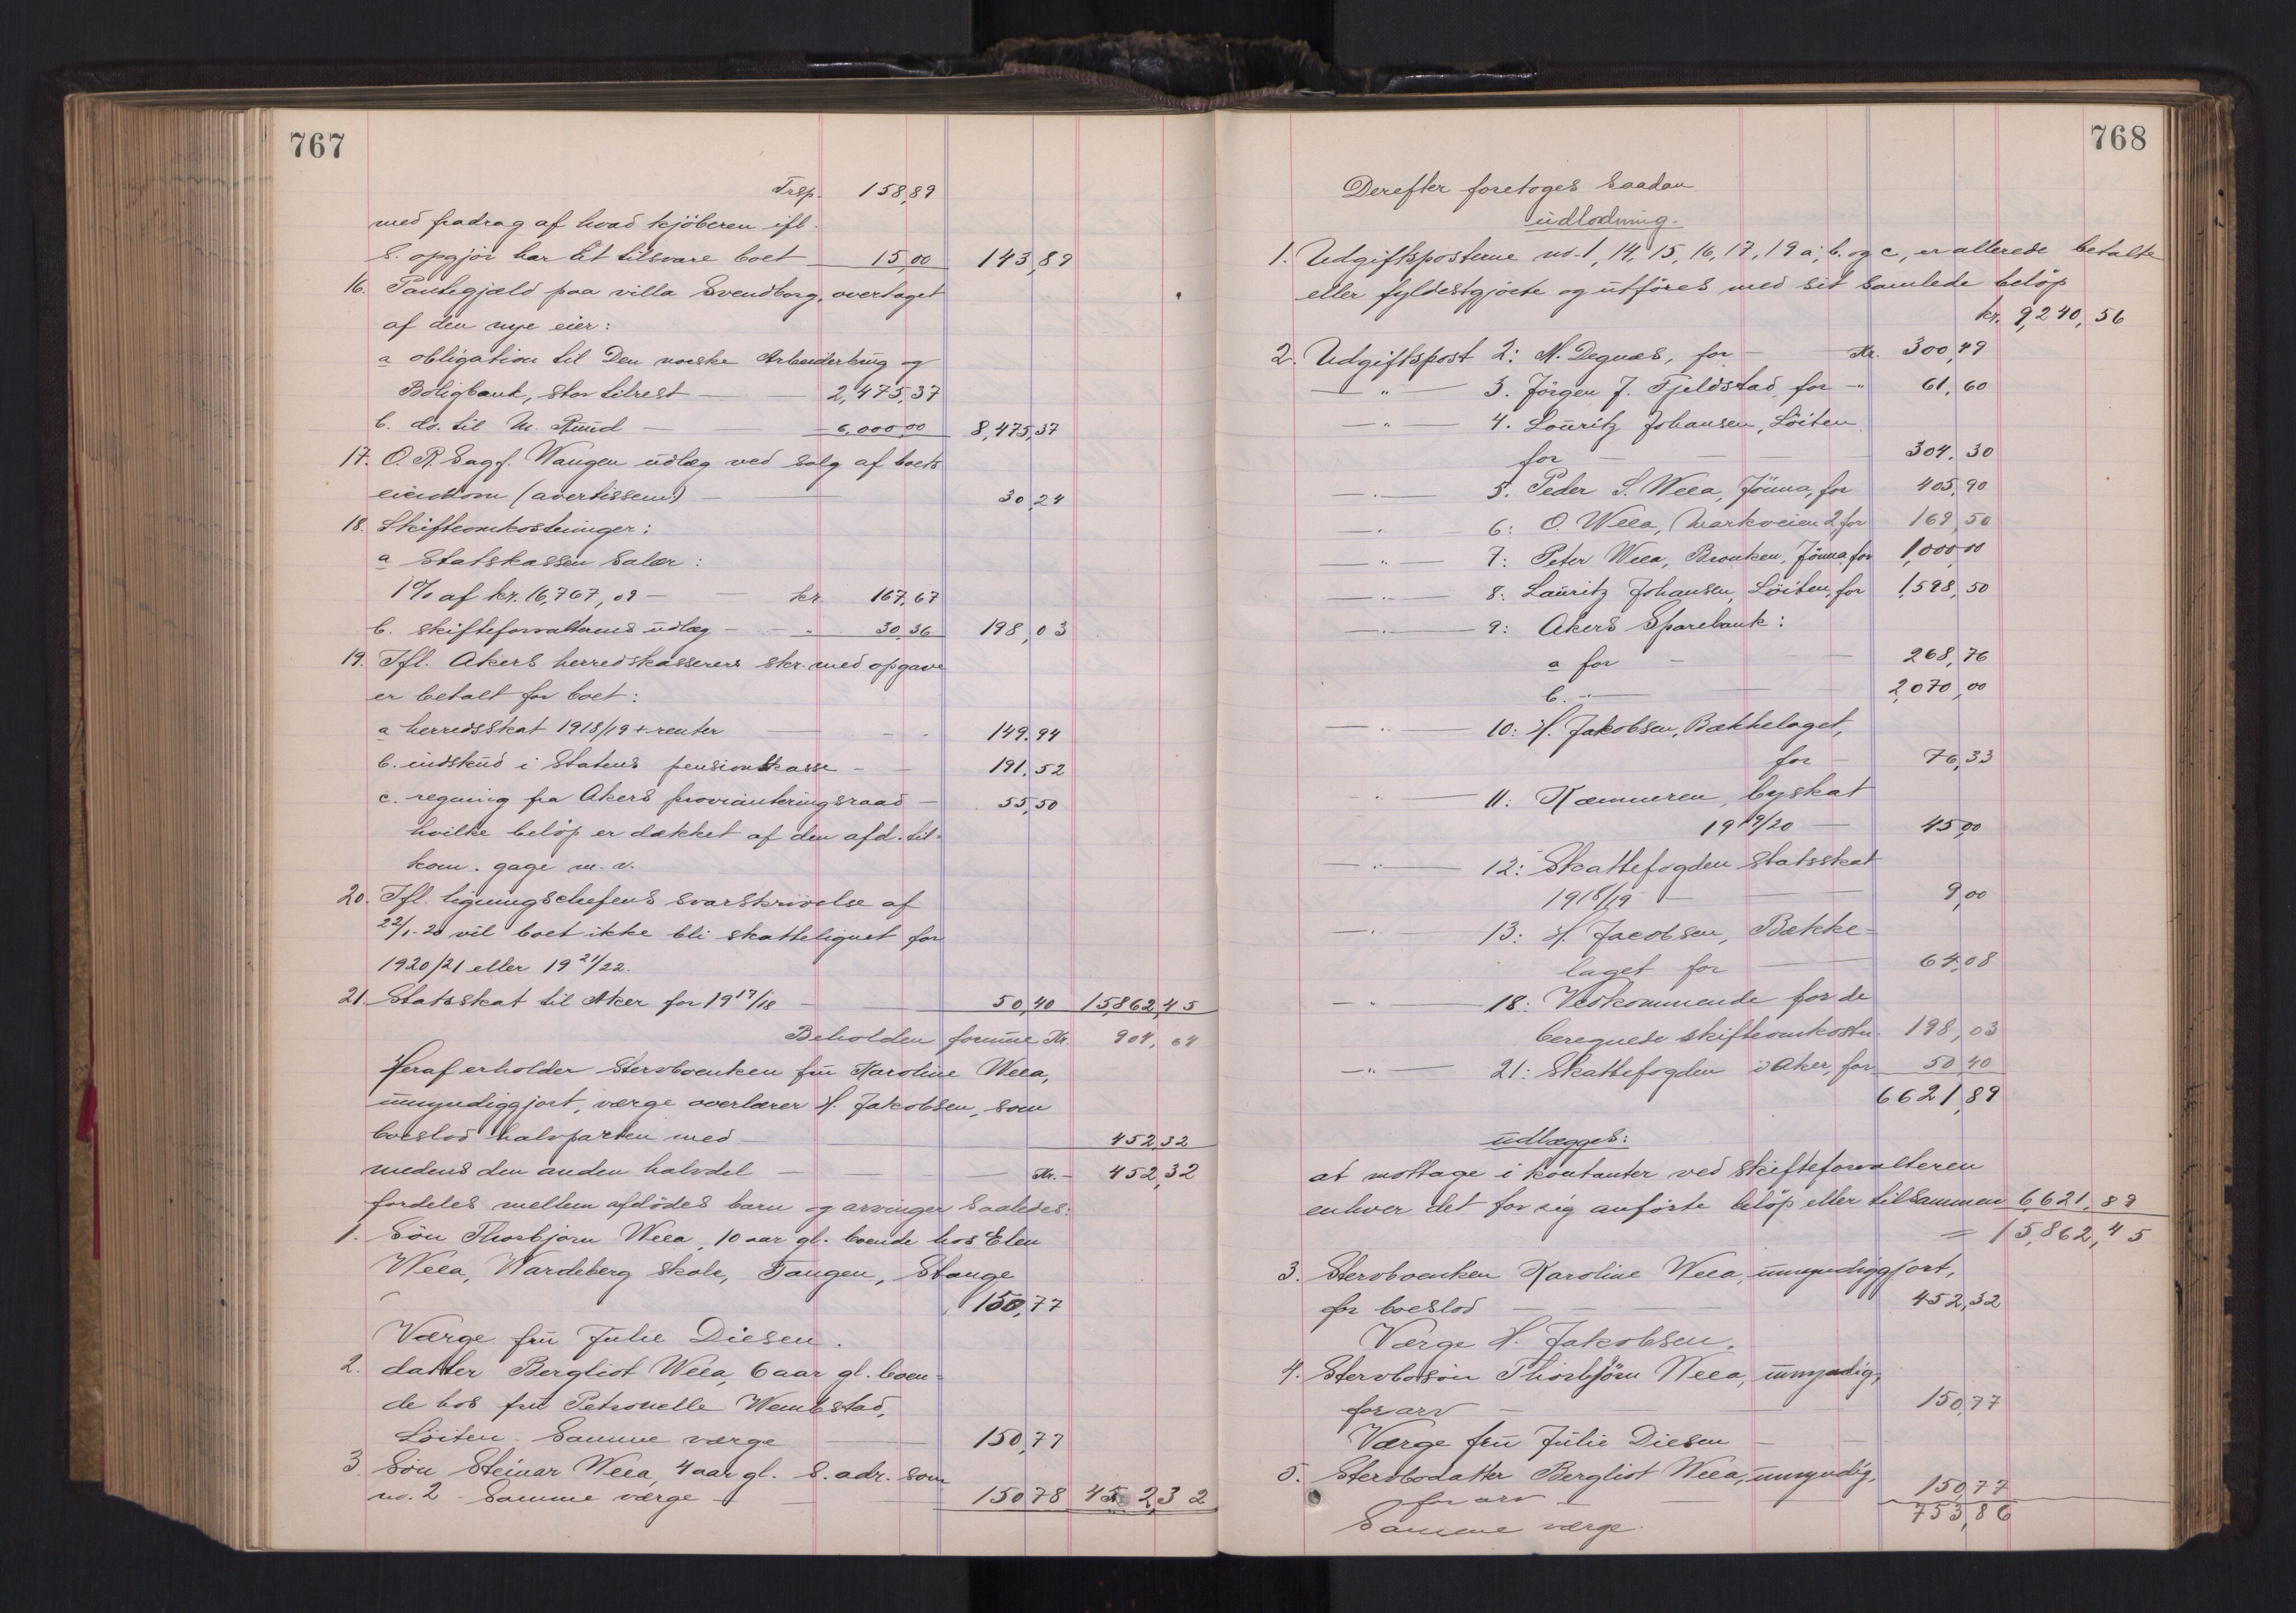 767
Trsp. 158,89
med fradrag af hvad kjöberen ifl.
S. opgjör har åt tilsvare boet 15,00 143,89
16. Pantegjæld paa villa Svendborg, overtaget
af den nye eier:
a obligation til Den norske Arbeiderbrug og
Boligbank, stor tilrest 2,475,37
b. do. til M. Ruud 6,000,00 8,475,37
17. O. R. Sagf. Wangen udlæg ved salg af boets
eiendom (avertissem.) 30,24
18. Skifteomkostninger:
a Statskassen Salær:
1% af kr. 16,767,09 – kr. 167,67
b. skifteforvalterens udlæg – " 30,36 198,03
19. Ifl. Akers herredskasserers skr. med opgave
er betalt for boet:
a herredsskat 1918/19 + renter 149,94
b. indskud i Statens pensionskasse 191,52
c. regning fra Akers provianteringsraad 55,50
hvilke belöp er dækket af den afd. til-
kom. gage m. v.
20. Ifl. ligningschefens svarskrivelse af
22/1-20 vil boet ikke bli skattelignet for
1920/21 eller 1921/22.
21. Statsskat til Aker for 1917/18 50,40 15,862,45
Beholden formue Kr. 904,64
Heraf erholder Stervboenken fru Karoline Weea,
umyndiggjort, værge overlærer H. Jakobsen, som
boeslod halvparten med 452,32
medens den anden halvdel Kr. 452,32
fordeles mellem afdödes barn og arvinger saaledes:
1. Sön Thorbjorn Weea, 10 aar gl. boende hos Elen
Weea, Wardeberg Skole, Tangen, Stange
150,77
Værge fru Julie Diesen.
2. datter Bergliot Weea, 6 aar gl. boen-
de hos fru Petronelle Wembstad,
Löiten. Samme værge 150,77
3 Sön Steinar Weea, 4 aar gl. S. adr. som
no. 2 – Samme værge – 150,78 452,32
768
Derefter foretoges saadan
udlodning.
1. Udgiftsposterne no. 1, 14, 15, 16, 17, 19 a, b. og c, er allerede betalte
eller fyldestgjorte og utföres med sit samlede belöp
kr. 9,240,56
2. Udgiftspost 2: M. Degnæs, for – Kr. 300,49
— " — 3. Jörgen J. Fjeldstad, for – " 61,60
— " — 4. Lauritz Johansen, Löiten
for 304,30
— " — 5. Peder S. Weea, Jönna, for 405,90
— " — 6: O. Weea, Markveien 2 for 169,50
— " — 7: Peter Weea, Bronken, Jönna, for 1,000,00
— " — 8: Lauritz Johansen, Löiten, for 1,598,50
— " — 9: Akers Sparebank:
a for 268,76
b. " 2,070,00
— " — 10: H. Jakobsen, Bækkelaget,
for 76,33
— " — 11: Kæmneren, byskat
1919/20 45,00
— " — 12: Skattefogden statsskat
1918/19 9,00
— " — 13: H. Jacobsen, Bække-
laget for 64,08
— " — 18: Vedkommende for de
beregnede skifteomkostn. 198,03
— " — 21: Skattefogden i Aker, for 50,40
6621,89
udlægges:
at mottage i kontanter ved skifteforvalteren
enhver det for sig anförte belöp eller tilsammen 6,621,89
= 15,862,45
3. Stervboenken Karoline Weea, umyndiggjort,
for boeslod 452,32
Værge H. Jakobsen.
4. Stervbosön Thorbjörn Weea, umyndig,
for arv 150,77
Værge fru Julie Diesen
5. Stervbodatter Bergliot Weea, umyndig,
for arv 150,77
Samme værge. 753,86